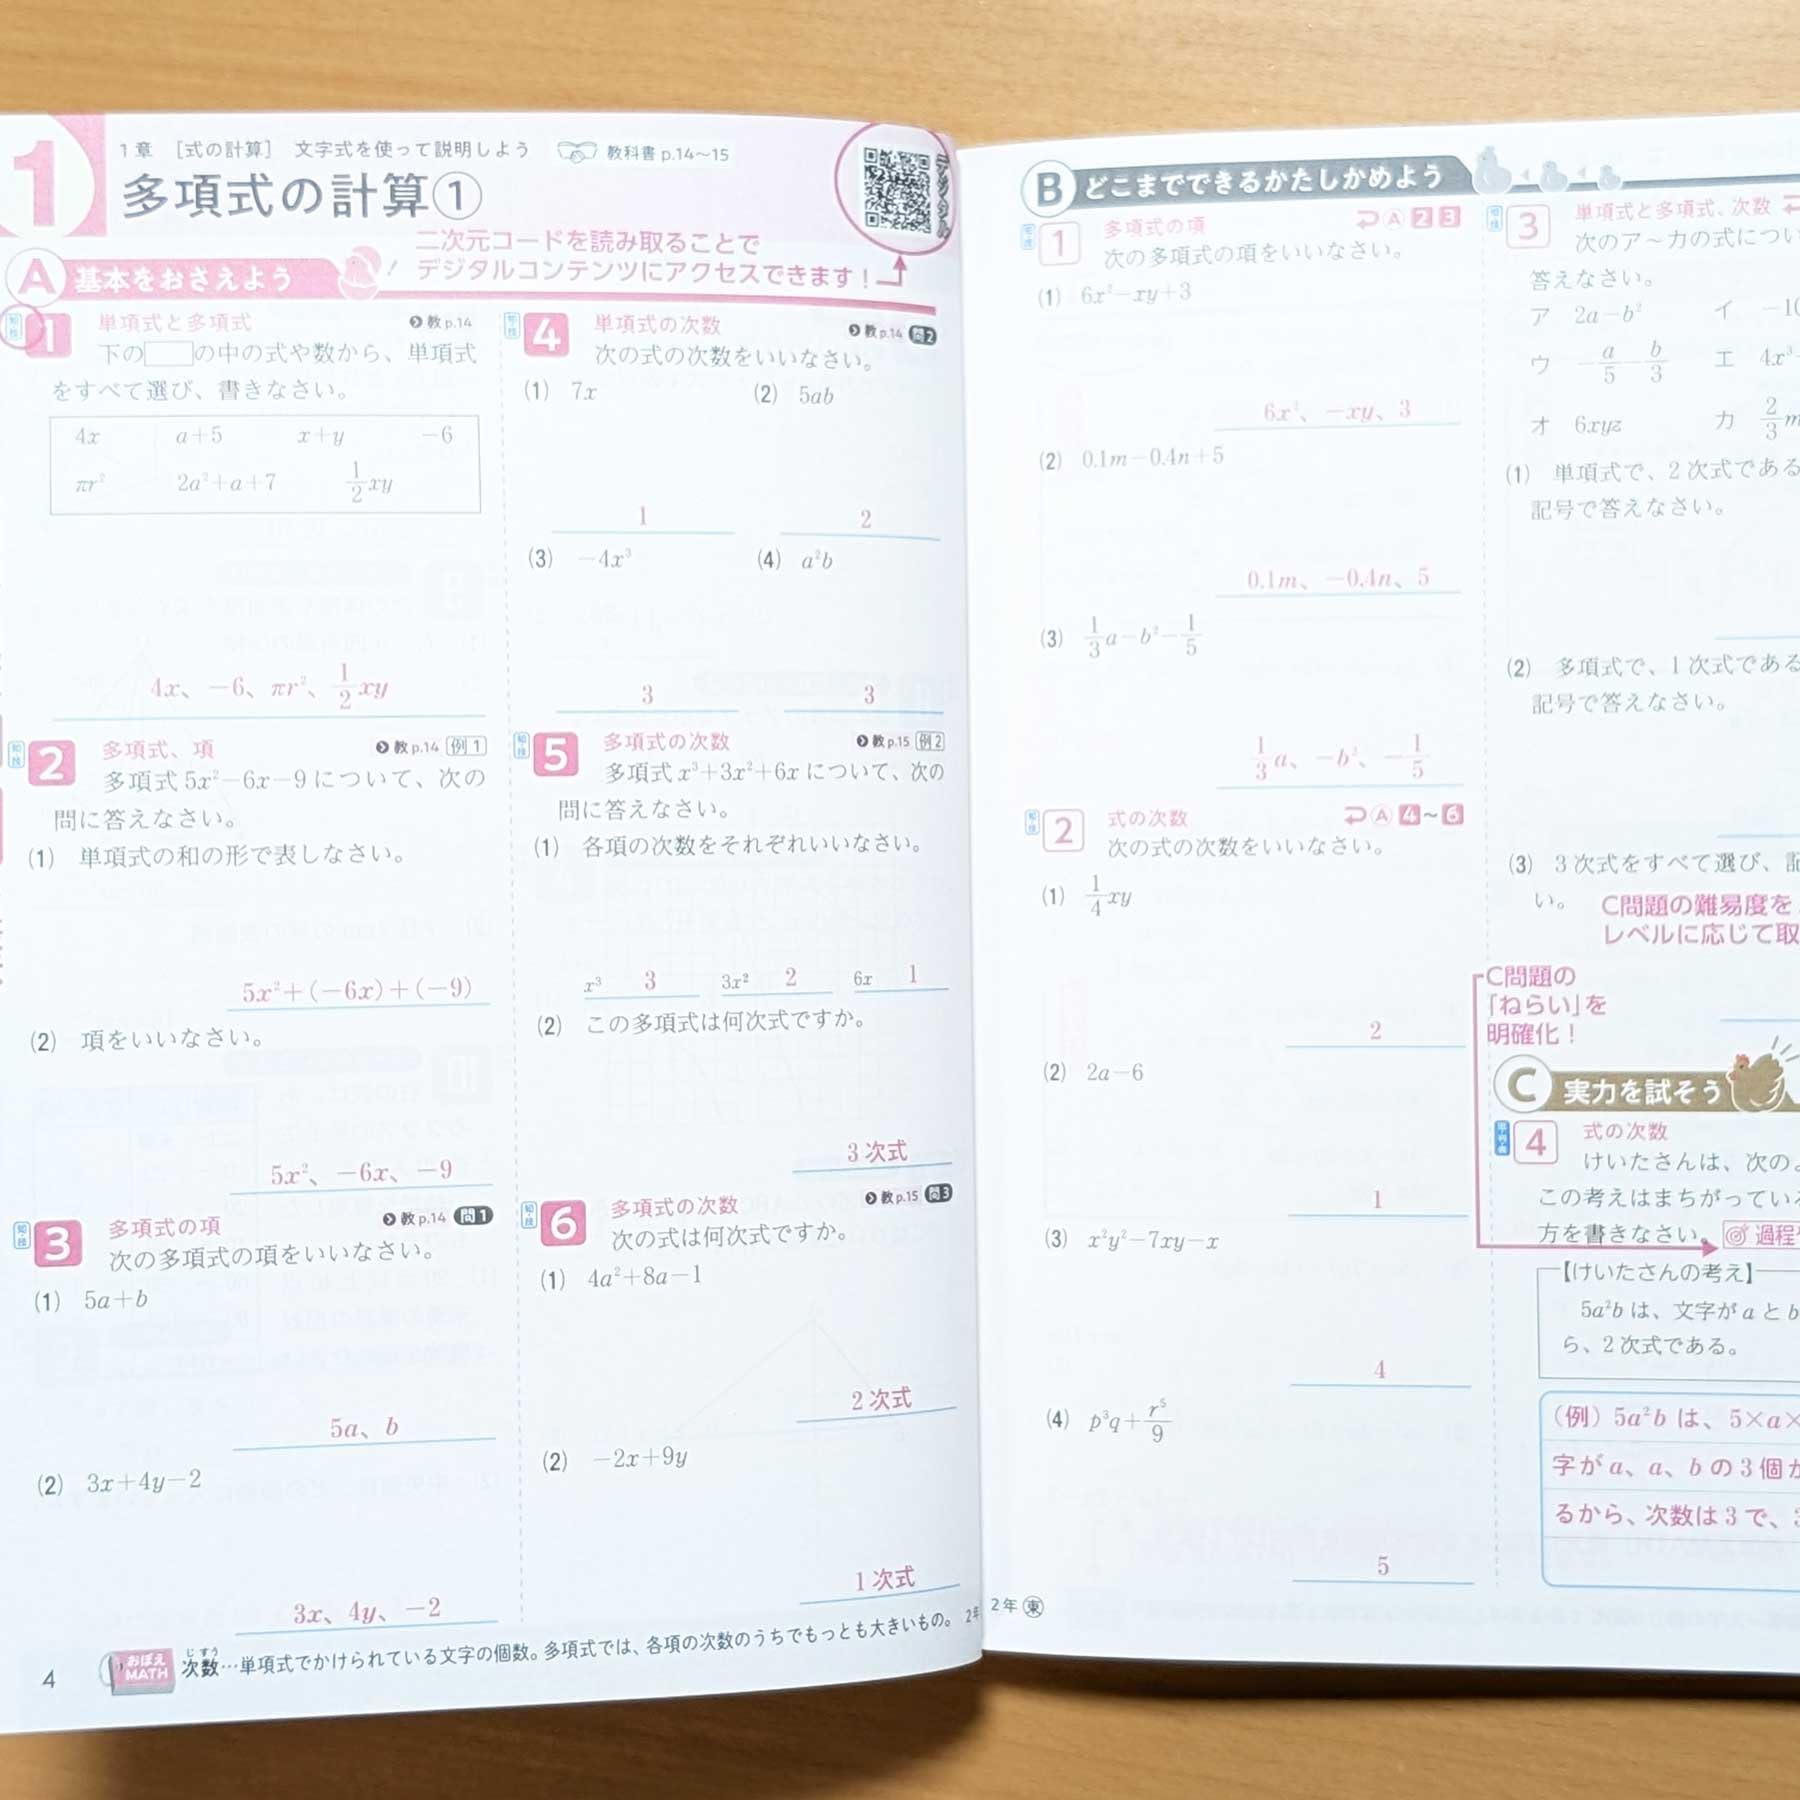 1
1章 [式の計算] 文字式を使って説明しよう 教科書 p.14〜15
多項式の計算①
デジタル
二次元コードを読み取ることで
デジタルコンテンツにアクセスできます！
A 基本をおさえよう
知・技
1 単項式と多項式 教 p.14
下の□の中の式や数から、単項式
をすべて選び、書きなさい。
4x a+5 x+y −6
πr² 2a²+a+7 1/2 xy
4x、−6、πr²、1/2 xy
知・技
2 多項式、項 教 p.14 例1
多項式 5x²−6x−9 について、次の
問に答えなさい。
(1) 単項式の和の形で表しなさい。
5x²+(−6x)+(−9)
(2) 項をいいなさい。
5x²、−6x、−9
知・技
3 多項式の項 教 p.14 問1
次の多項式の項をいいなさい。
(1) 5a+b
5a、b
(2) 3x+4y−2
3x、4y、−2
知・技
4 単項式の次数 教 p.14 問2
次の式の次数をいいなさい。
(1) 7x (2) 5ab
1 2
(3) −4x³ (4) a²b
3 3
知・技
5 多項式の次数 教 p.15 例2
多項式 x³+3x²+6x について、次の
問に答えなさい。
(1) 各項の次数をそれぞれいいなさい。
x³ 3 3x² 2 6x 1
(2) この多項式は何次式ですか。
3次式
知・技
6 多項式の次数 教 p.15 問3
次の式は何次式ですか。
(1) 4a²+8a−1
2次式
(2) −2x+9y
1次式
4 おぼえMATH 次数(じすう)…単項式でかけられている文字の個数。多項式では、各項の次数のうちでもっとも大きいもの。 2年
B どこまでできるかたしかめよう
知・技
1 多項式の項 A 2 3
次の多項式の項をいいなさい。
(1) 6x²−xy+3
6x²、−xy、3
(2) 0.1m−0.4n+5
0.1m、−0.4n、5
(3) 1/3 a−b²−1/5
1/3 a、−b²、−1/5
知・技
2 式の次数 A 4〜6
次の式の次数をいいなさい。
(1) 1/4 xy
2
(2) 2a−6
1
(3) x²y²−7xy−x
4
(4) p³q+r⁵/9
5
2年 東
知・技
3 単項式と多項式、次数
次のア〜カの式につい
答えなさい。
ア 2a−b² イ −10
ウ −a/5−b/3 エ 4x³
オ 6xyz カ 2/3 m
(1) 単項式で、2次式である
記号で答えなさい。
(2) 多項式で、1次式である
記号で答えなさい。
(3) 3次式をすべて選び、記
い。
C問題の難易度を
レベルに応じて取
C問題の
「ねらい」を
明確化！
C 実力を試そう
4 式の次数
けいたさんは、次の
この考えはまちがっている
方を書きなさい。 過程
【けいたさんの考え】
5a²b は、文字が a と b
ら、2次式である。
(例) 5a²b は、5×a×
字が a、a、b の3個か
るから、次数は3で、3